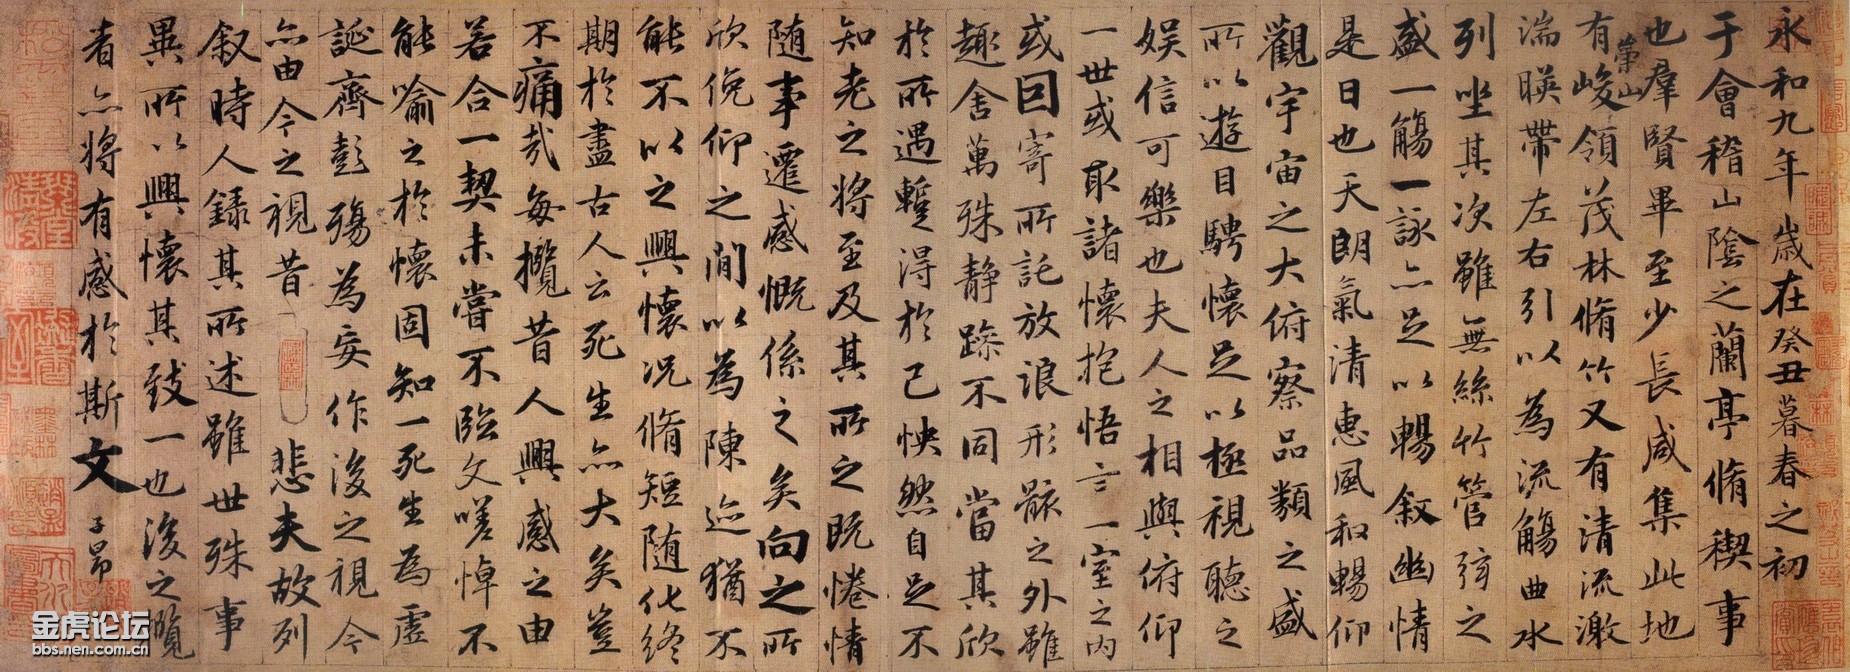 永和九年歲在癸丑暮春之初
于會稽山陰之蘭亭脩禊事
也羣賢畢至少長咸集此地
有崇山峻領茂林脩竹又有清流激
湍暎帶左右引以為流觴曲水
列坐其次雖無絲竹管弦之
盛一觴一詠亦足以暢叙幽情
是日也天朗氣清惠風和暢仰
觀宇宙之大俯察品類之盛
所以遊目騁懷足以極視聽之
娛信可樂也夫人之相與俯仰
一世或取諸懷抱悟言一室之內
或因寄所託放浪形骸之外雖
趣舍萬殊静躁不同當其欣
於所遇蹔得於己怏然自足不
知老之將至及其所之既惓情
随事遷感慨係之矣向之所
欣俛仰之閒以為陳迹猶不
能不以之興懷况脩短随化終
期於盡古人云死生亦大矣豈
不痛哉每攬昔人興感之由
若合一契未嘗不臨文嗟悼不
能喻之於懷固知一死生為虛
誕齊彭殤為妄作後之視今
亦由今之視昔悲夫故列
叙時人錄其所述雖世殊事
異所以興懷其致一也後之覽
者亦將有感於斯文 子昂
金虎论坛
bbs.nen.com.cn